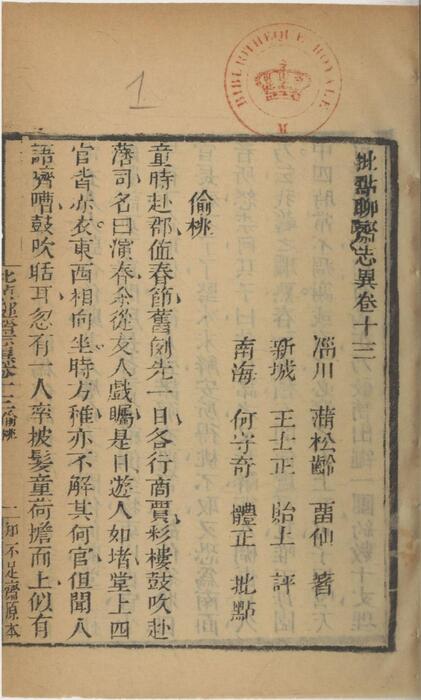 批點聊齋志異卷十三
淄川 蒲松齡 畱仙 著
新城 王士正 貽上 評
南海 何守奇 體正 批點
偷桃
童時赴郡值春節舊例先一日各行商賈彩樓鼓吹赴
藩司名曰演春余從友人戲矚是日遊人如堵堂上四
官皆赤衣東西相向坐時方稚亦不解其何官但聞人
語嚌嘈鼓吹聒耳忽有一人率披髮童荷擔而上似有
批點聊齋志異卷十三 偷桃 一 知不足齋原本
BIBLIOTHEQUE ROYALE
1